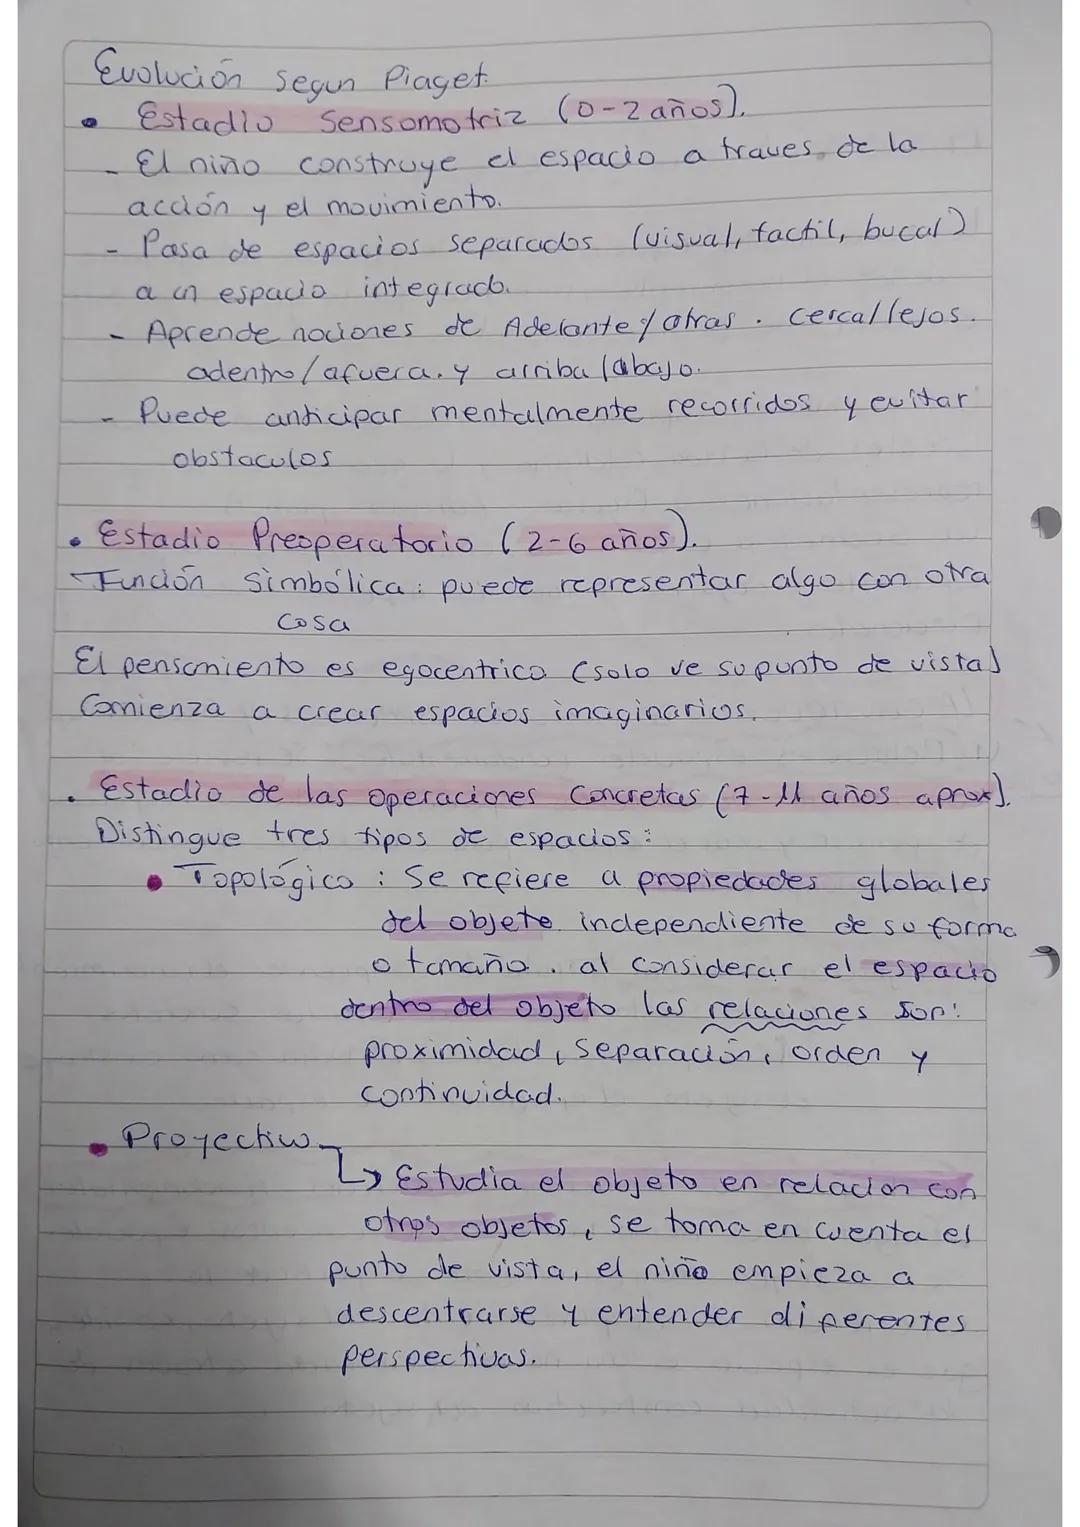 Evolución segun Piaget.
• Estadio Sensomotriz (0-2 años).
- El niño construye el espacio a traves de la
acción y el movimiento.
- Pasa de espacios separados (visual, tactil, bucal)
a un espacio integrado.
- Aprende nociones de Adelante/atras. cerca/lejos.
adentro/afuera. y arriba/abajo.
- Puede anticipar mentalmente recorridos y evitar
obstaculos
• Estadio Preoperatorio (2-6 años).
- Función Simbólica: puede representar algo con otra
cosa
El pensamiento es egocentrico (solo ve su punto de vista)
Comienza a crear espacios imaginarios.
• Estadio de las operaciones Concretas (7-11 años aprox).
Distingue tres tipos de espacios:
• Topológico: Se refiere a propiedades globales
del objeto independiente de su forma
o tamaño. al considerar el espacio
dentro del objeto las relaciones son:
proximidad, separación, orden y
continuidad.
• Proyectivo
↳ Estudia el objeto en relacion con
otros objetos, se toma en cuenta el
punto de vista, el niño empieza a
descentrarse y entender diferentes
perspectivas.